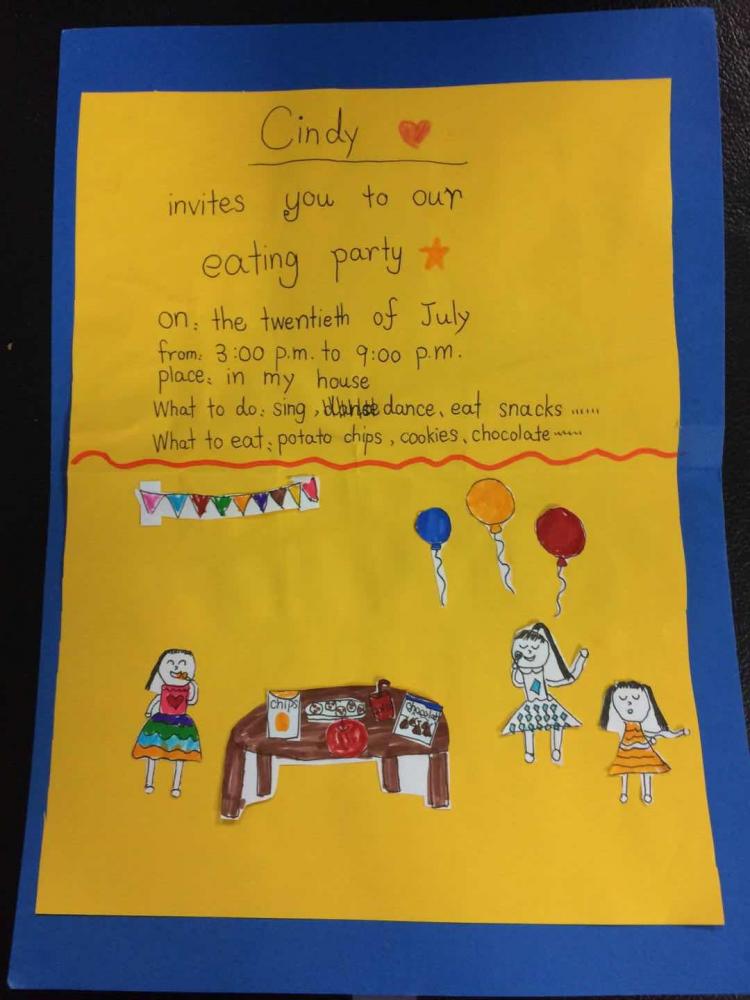 Cindy
invites you to our
eating party
on: the twentieth of July
from: 3:00 p.m. to 9:00 p.m.
place: in my house
What to do: sing, dance, eat snacks ......
What to eat: potato chips, cookies, chocolate ......
chips
chocolate